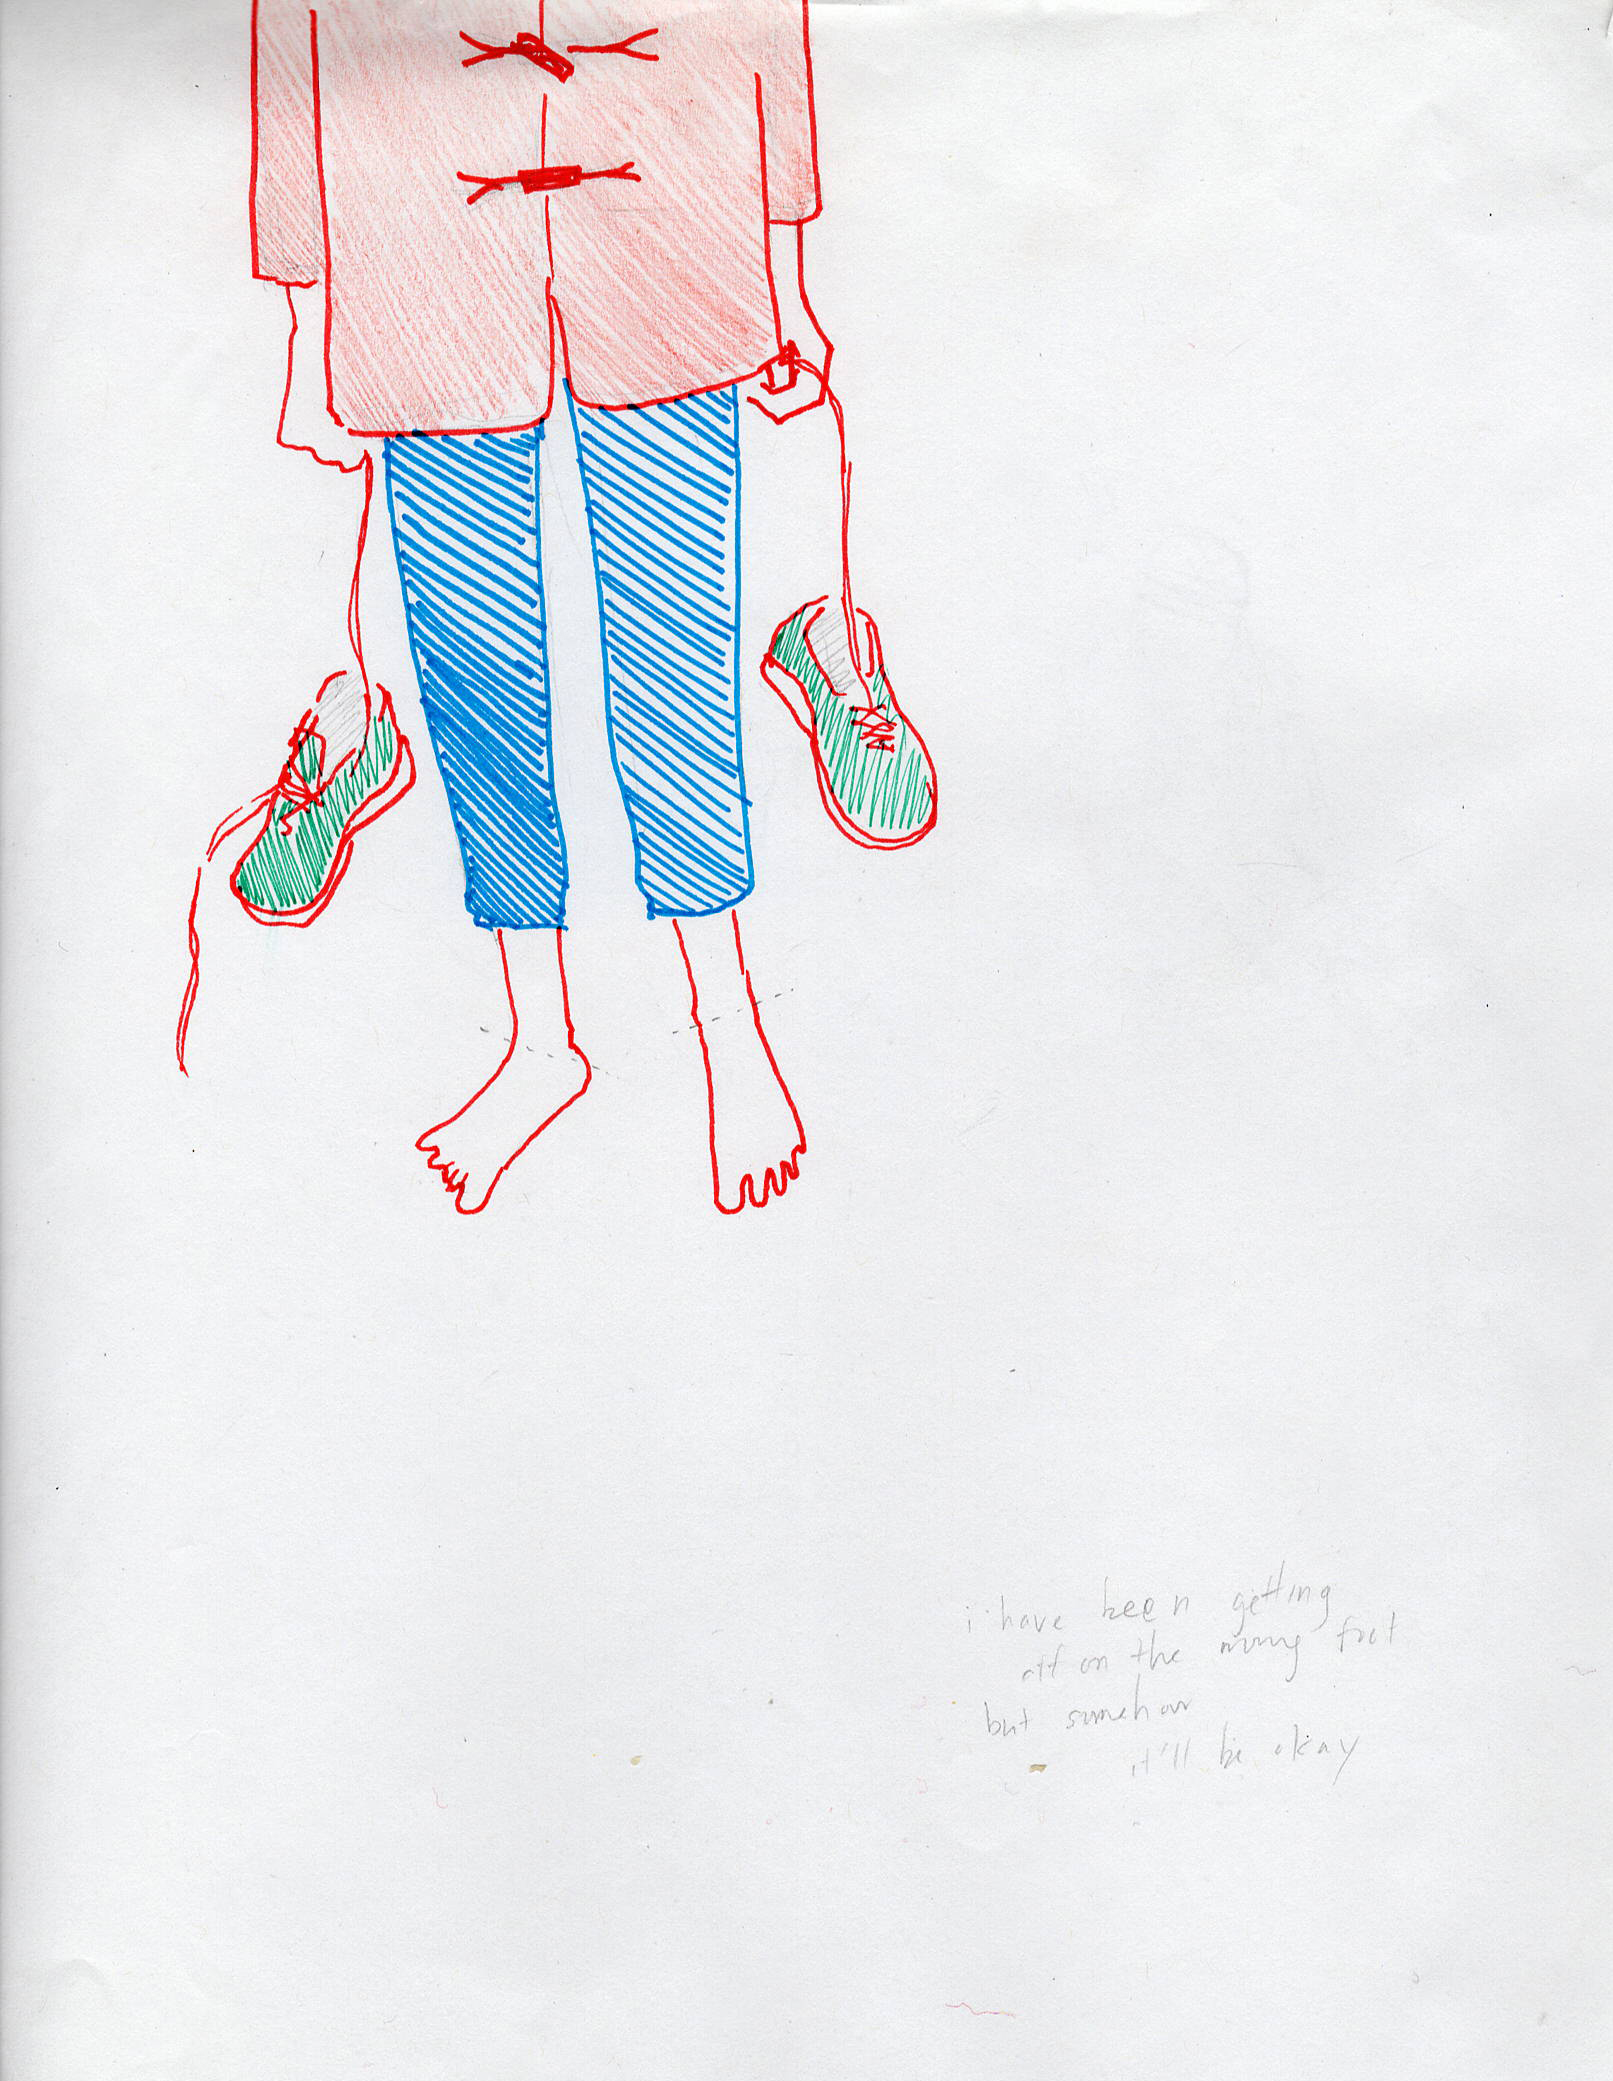 i have been getting
off on the wrong foot
but somehow
it'll be okay